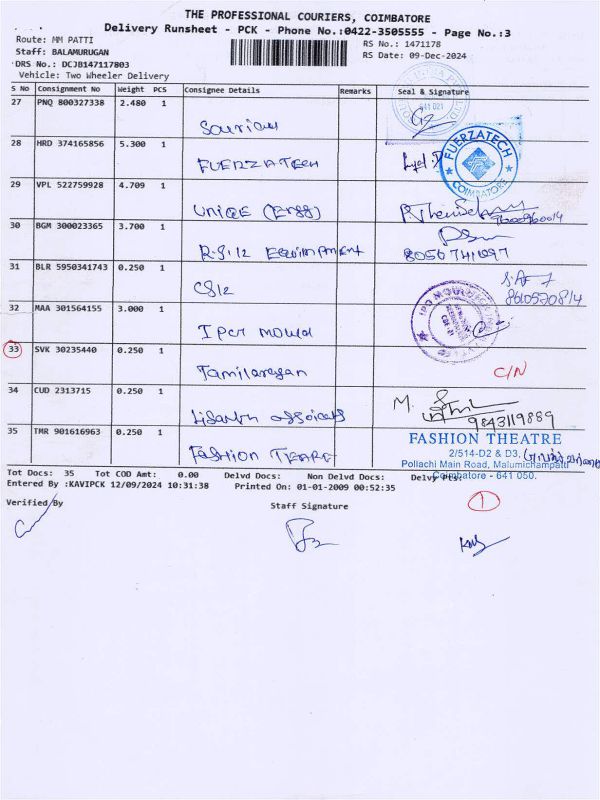 THE PROFESSIONAL COURIERS, COIMBATORE
Delivery Runsheet - PCK - Phone No.:0422-3505555 - Page No.:3
Route: MM PATTI
RS No.: 1471178
Staff: BALAMURUGAN
RS Date: 09-Dec-2024
DRS No.: DCJB147117803
Vehicle: Two Wheeler Delivery
S No Consignment No Weight PCS Consignee Details Remarks Seal & Signature
27 PNQ 800327338 2.480 1
641 021
28 HRD 374165856 5.300 1
FUERZATECH
FUERZATECH
COIMBATORE
29 VPL 522759928 4.709 1
UNIQE (Engg)
30 BGM 300023365 3.700 1
R.S.12 Equipment
31 BLR 5950341743 0.250 1
32 MAA 301564155 3.000 1
Mould
33 SVK 30235440 0.250 1
C/N
Tamilarasan
34 CUD 2313715 0.250 1
M.
9843119889
35 TMR 901616963 0.250 1
Fashion
FASHION THEATRE
2/514-D2 & D3,
Pollachi Main Road, Malumichampatti
Coimbatore - 641 050.
Tot Docs: 35 Tot COD Amt: 0.00 Delvd Docs: Non Delvd Docs: Delvy Pts:
Entered By :KAVIPCK 12/09/2024 10:31:38 Printed On: 01-01-2009 00:52:35
1
Verified By
Staff Signature